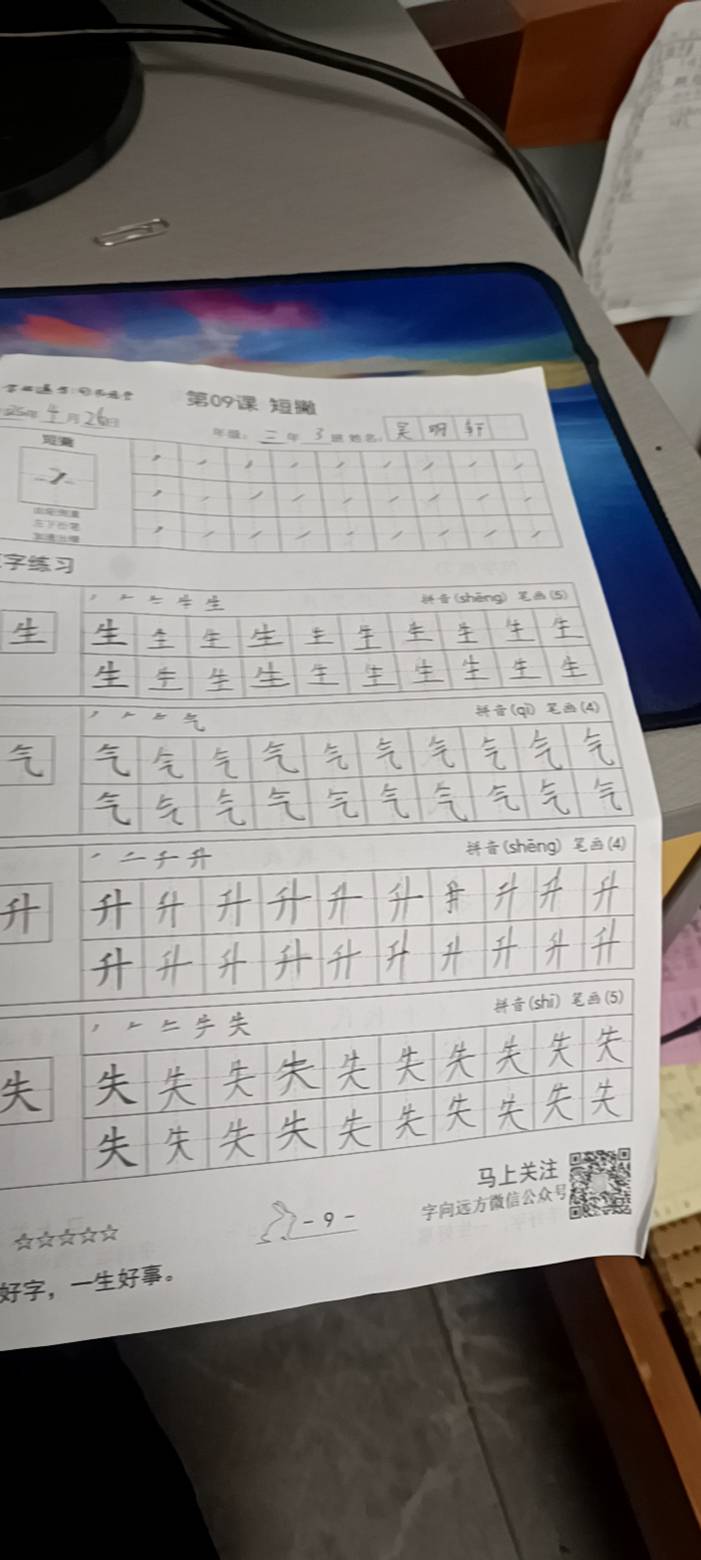 第09课 短撇
25年 4月26日
年级：三年3班 姓名：吴明轩
短撇
字练习
生 拼音(shēng) 笔画(5)
生 生 生 生 生 生 生 生 生 生 生
生 生 生 生 生 生 生 生 生 生
气 拼音(qì) 笔画(4)
气 气 气 气 气 气 气 气 气 气 气
气 气 气 气 气 气 气 气 气 气
升 拼音(shēng) 笔画(4)
升 升 升 升 升 升 升 升 升 升 升
升 升 升 升 升 升 升 升 升 升
失 拼音(shī) 笔画(5)
失 失 失 失 失 失 失 失 失 失 失
失 失 失 失 失 失 失 失 失 失
马上关注
字向远方微信公众号
- 9 -
好字，一生好事。